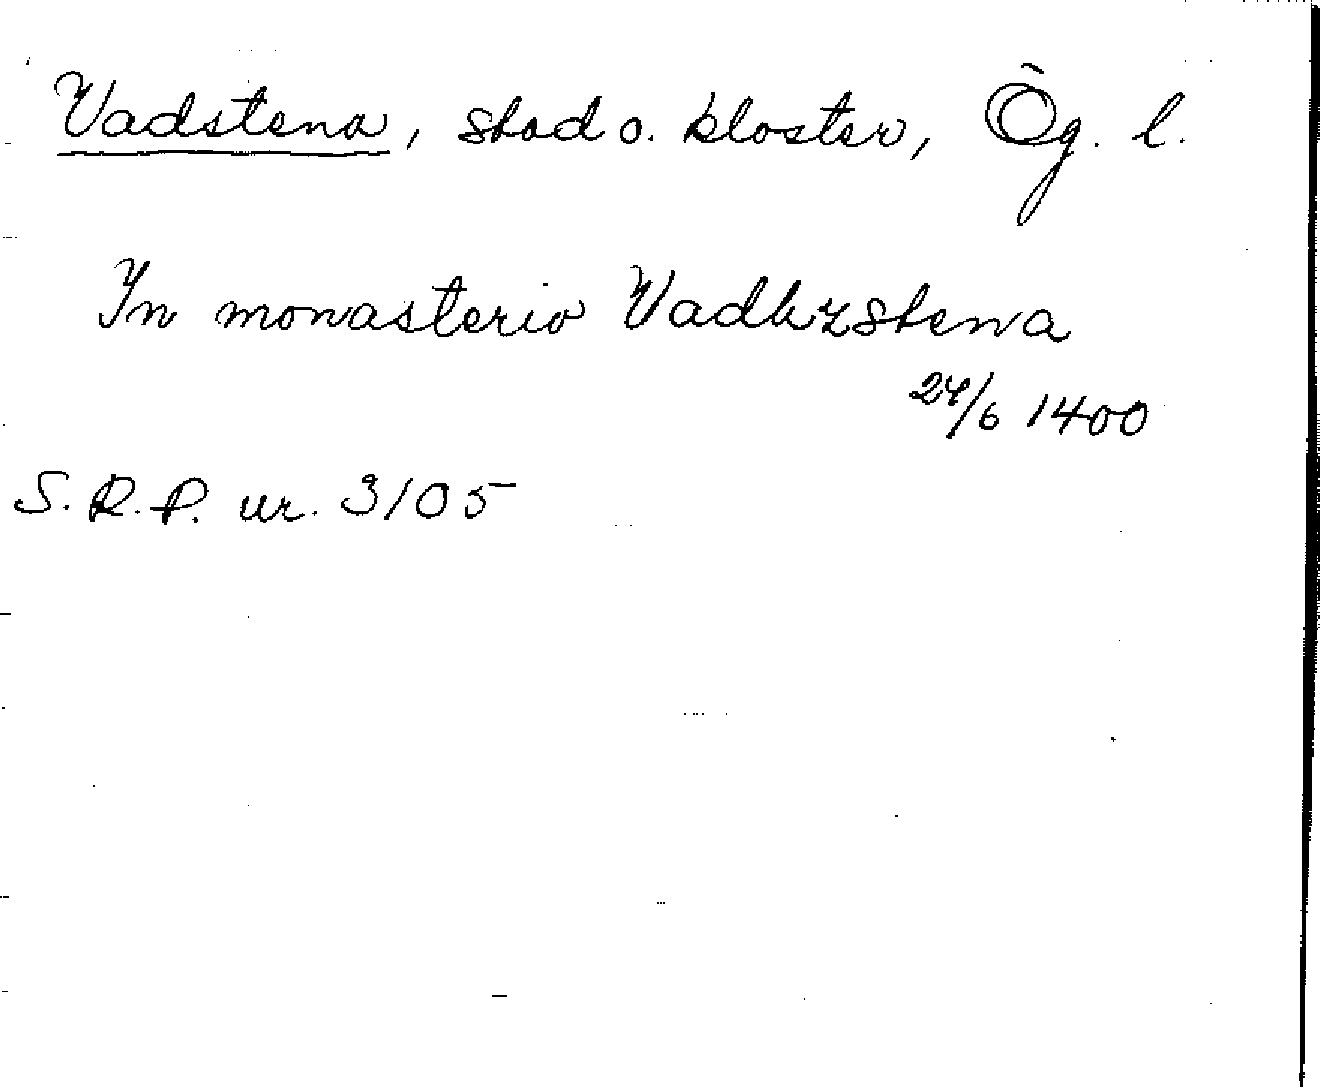 Vadstena, stad o. kloster, Ög. l.
In monasterio Vadhzstena
24/6 1400
S.R.P. nr. 3105